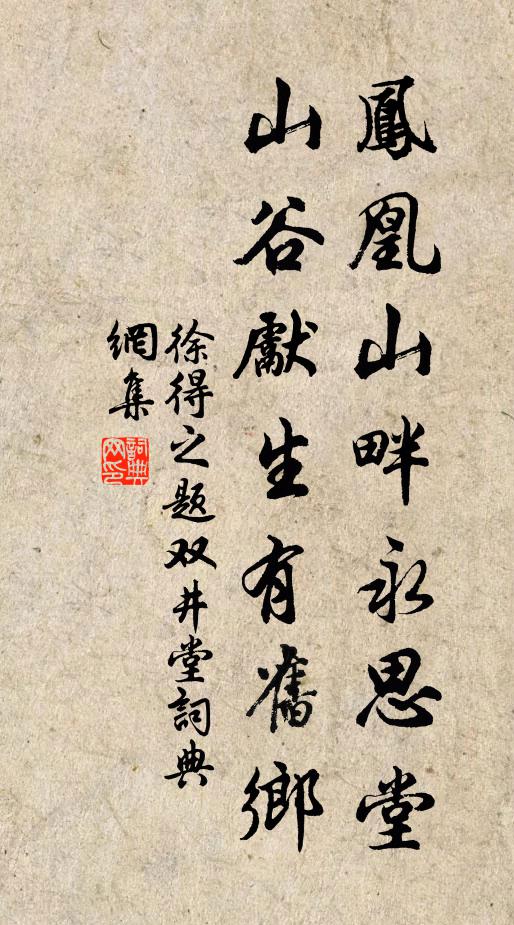 鳳凰山畔永思堂
山谷獻生有舊鄉
徐得之题双井堂詞典
網集
詞典网印